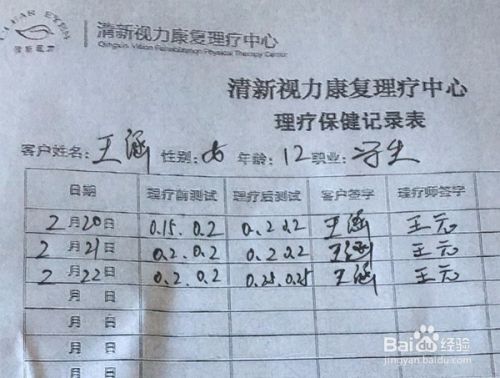 CLEAR EYES
清新视力
清新视力康复理疗中心
Qingxin Vision Rehabilitation Physical Therapy Center
清新视力康复理疗中心
理疗保健记录表
客户姓名: 王涵 性别: 女 年龄: 12 职业: 学生
日期 理疗前测试 理疗后测试 客户签字 理疗师签字
2月20日 0.15. 0.2 0.2 0.2 王涵 王元
2月21日 0.2. 0.2 0.2 0.2 王涵 王元
2月22日 0.2. 0.2 0.25. 0.25 王涵 王元
月 日
月 日
月 日
月 日
Baidu经验
jingyan.baidu.com